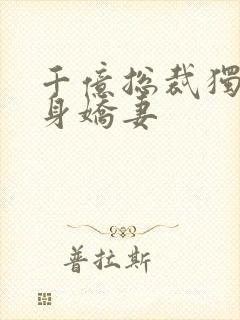 千億總裁獨
身嬌妻
普拉斯